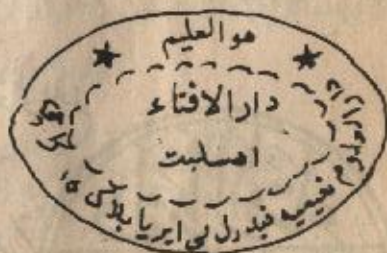 هو العلیم
دار الافتاء
اهلسنت
دارالعلوم نعیمیہ فیڈرل بی ایریا بلاک ۱۵ کراچی